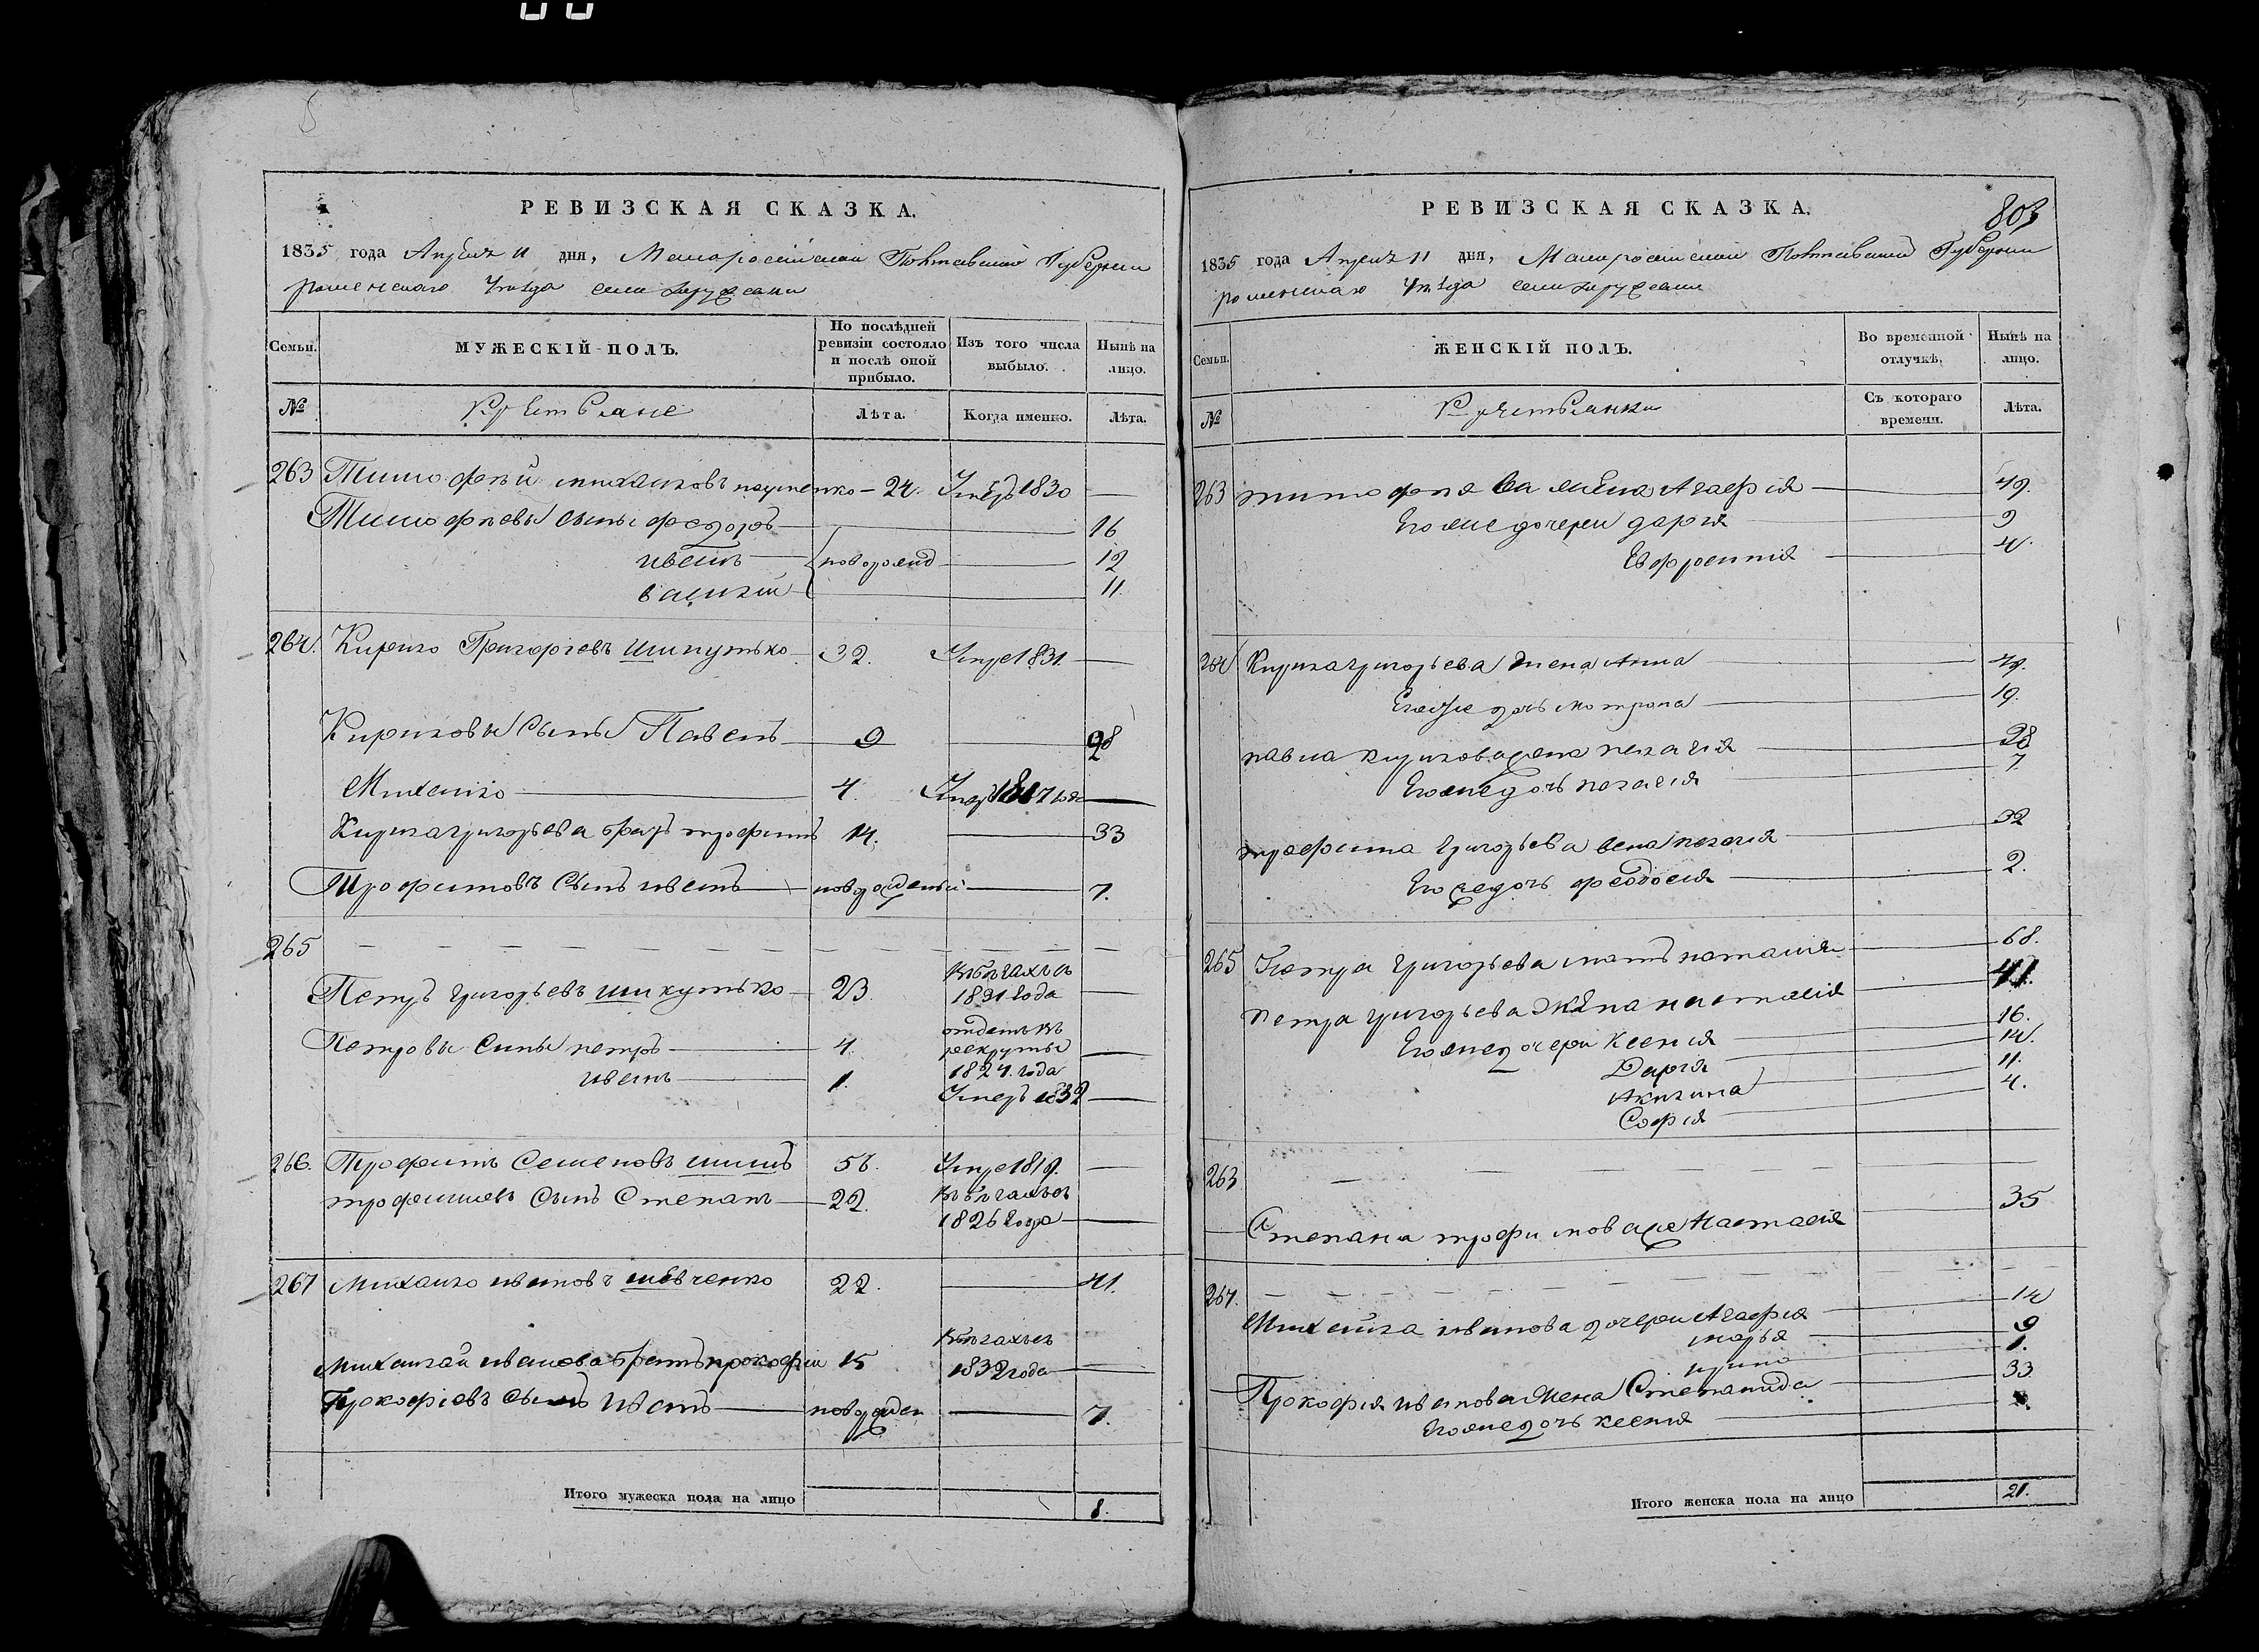 РЕВИЗСКАЯ СКАЗКА.
1835 года Апреля 11 дня, Малороссійской Полтавской Губерніи
роменскаго Уѣзда села
Семьи. МУЖЕСКІЙ ПОЛЪ. По послѣдней ревизіи состояло и послѣ оной прибыло. Изъ того числа выбыло. Нынѣ на лицо.
№ Крестьяне Лѣта. Когда именно. Лѣта.
263 Тимофѣй михайловъ науменко 24. Умеръ 1830
Тимофѣевы сыны федоръ 16
иванъ новорожд 12
василій 11.
264. Кирило Григорьевъ шипутько 32. Умре 1831.
Кириловы Сыны Павелъ 9 28
Михайло 4. Умеръ 1817 года
Кирила григорьева братъ трофимъ 14. 33
Трофимовъ Сынъ иванъ новорожденный 7.
265
Петръ григорьевъ шикутько 23. Въ бѣгахъ съ
1831 года
Петровы Сыны петръ 4. отданъ въ
рекруты
1824. года
иванъ 1. Умеръ 1832
266. Трофимъ Семеновъ шишъ 56. Умре 1819.
трофимовъ Сынъ Степанъ 22. Въ бѣгахъ съ
1826 года
267 Михайло ивановъ шевченко 22. 41.
Михайлы иванова братъ прокофій 15 Въ бѣгахъ съ
1832 года
Прокофіевъ сынъ Иванъ новорожден 7.
Итого мужеска пола на лицо 8.
803
РЕВИЗСКАЯ СКАЗКА.
1835 года Апреля 11 дня, Малороссійской Полтавской Губерніи
роменскаго Уѣзда села
Семьи. ЖЕНСКІЙ ПОЛЪ. Во временной отлучкѣ. Нынѣ на лицо.
№ Крестьянки Съ котораго времени. Лѣта.
263 тимофея жена Агафія 49.
Его же дочери дарія 9
Евфросинія 4.
264 Кирила григорьева жена Анна 49.
Его же дочь мотрона 19.
павла кирилова жена пелагія 28
Его же дочь пелагія 7
трофима григорьева жена пелагія 32
Его же дочь феодосія 2.
265 Петра григорьева мать наталія 68.
петра григорьева жена настасія 41.
Его же дочери Ксенія 16.
Дарія 14.
Акилина 11.
Софія 4.
263
Степана трофимова же Настасія 35
267.
Михайла иванова дочери Агафія 14
марья 9
ирина 1.
Прокофія иванова жена Степанида 33
Его же дочь ксенія
Итого женска пола на лицо 21.